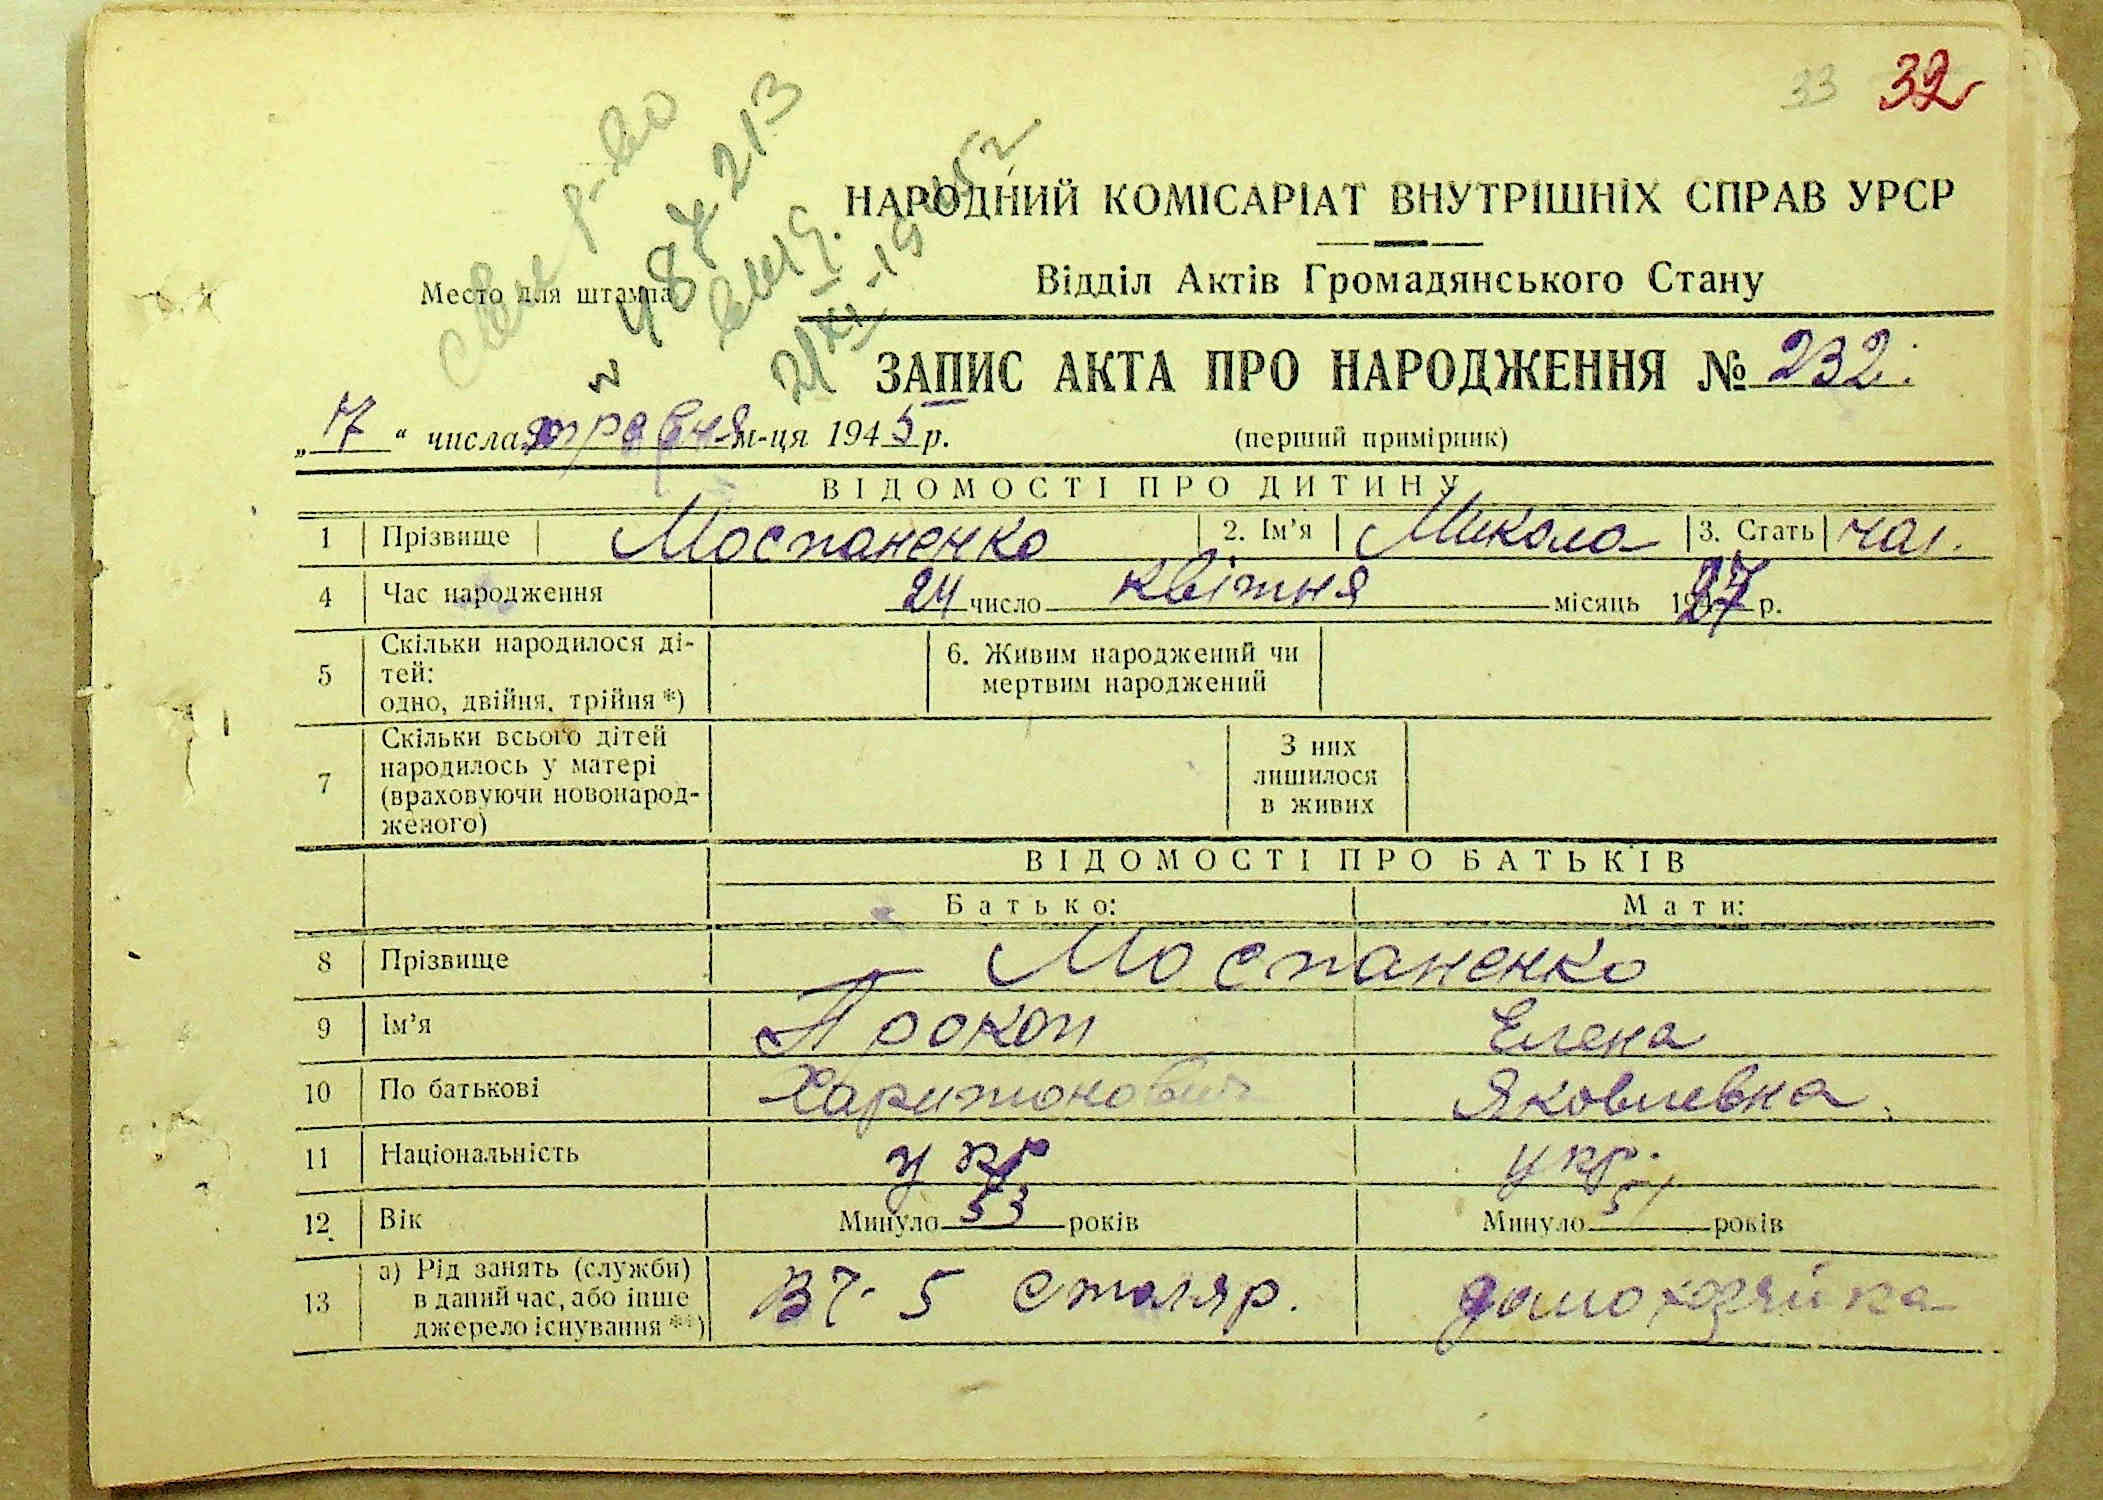 33 32
НАРОДНИЙ КОМІСАРІАТ ВНУТРІШНІХ СПРАВ УРСР
Відділ Актів Громадянського Стану
Место для штампа
№ 487213
21/XI-1952
ЗАПИС АКТА ПРО НАРОДЖЕННЯ № 232.
„7“ числа травня м-ця 1945 р.
(перший примірник)
ВІДОМОСТІ ПРО ДИТИНУ
1 Прізвище Моспаненко 2. Ім’я Микола 3. Стать чол.
4 Час народження 24 число квітня місяць 1927 р.
5 Скільки народилося ді-
тей:
одно, двійня, трійня *)
6. Живим народжений чи
мертвим народжений
7 Скільки всього дітей
народилось у матері
(враховуючи новонарод-
женого)
З них
лишилося
в живих
ВІДОМОСТІ ПРО БАТЬКІВ
Батько: Мати:
8 Прізвище Моспаненко
9 Ім’я Прокоп Елена
10 По батькові Харитонович Яковлевна
11 Національність укр укр.
12 Вік Минуло 53 років Минуло 51 років
13 а) Рід занять (служби)
в даний час, або інше
джерело існування **)
ВЧ-5 столяр. домохозяйка